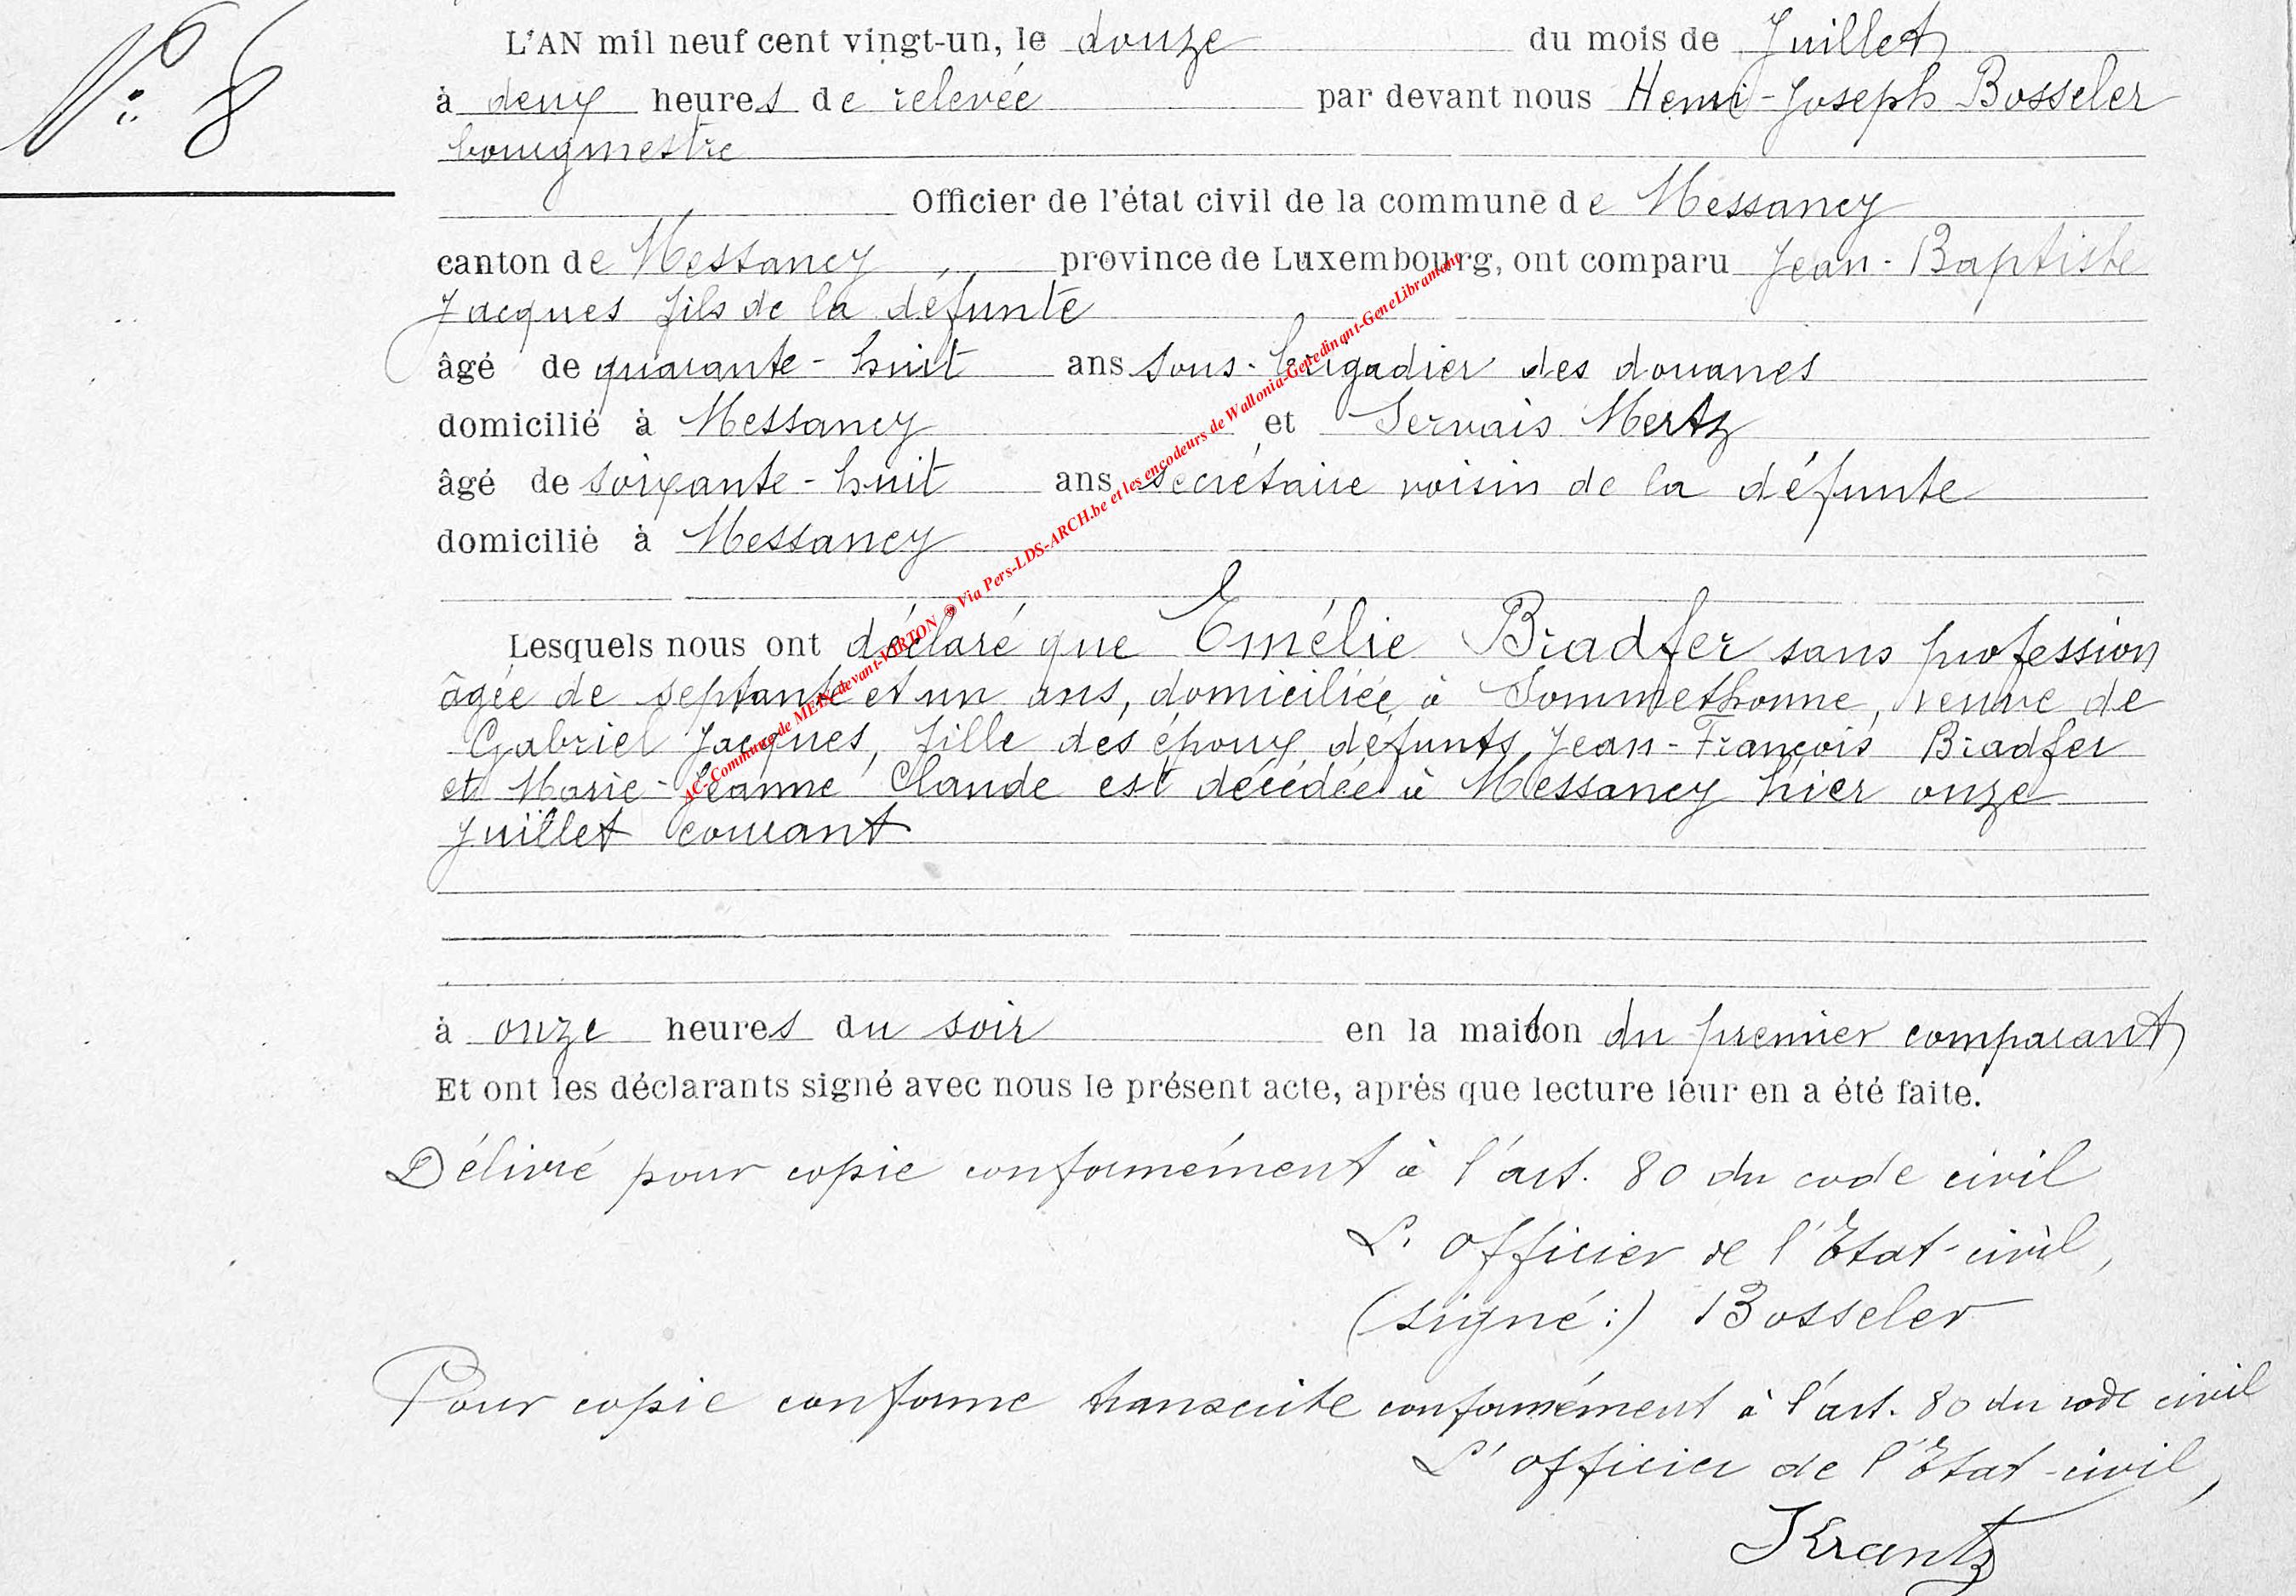 N° 8
L'AN mil neuf cent vingt-un, le douze du mois de Juillet
à deux heures de relevée par devant nous Henri-Joseph Bosseler
bourgmestre
Officier de l'état civil de la commune de Messancy
canton de Messancy, province de Luxembourg, ont comparu Jean-Baptiste
Jacques fils de la défunte
âgé de quarante-huit ans sous-brigadier des douanes
domicilié à Messancy et Servais Mertz
âgé de soixante-huit ans secrétaire voisin de la défunte
domicilié à Messancy
Lesquels nous ont déclaré que Emélie Bradfer sans profession
âgée de septante et un ans, domiciliée à Sommethonne, veuve de
Gabriel Jacques, fille des époux défunts Jean-François Bradfer
et Marie-Jeanne Claude est décédée à Messancy hier onze
Juillet courant
à onze heures du soir en la maison du premier comparant
Et ont les déclarants signé avec nous le présent acte, après que lecture leur en a été faite.
Délivré pour copie conformément à l'art. 80 du code civil
L'officier de l'Etat-civil,
(signé:) Bosseler
Pour copie conforme transcrite conformément à l'art. 80 du code civil
L'officier de l'Etat-civil,
Krantz
AC-Commune de MEIX-devant-VIRTON ® Via Pers-LDS-ARCH.be et les encodeurs de Wallonia-Genedinant-GeneLibramont